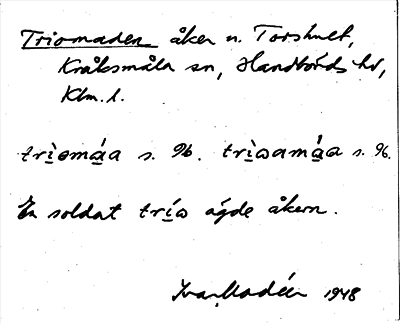 Triomaden åker n. Torshult,
Kråksmåla sn, Handbörds hd,
Klm. l.
trìomá̱a s. 96. trìo̱amá̱a s. 96.
En soldat trío ägde åkern.
Ivar Modéer 1948